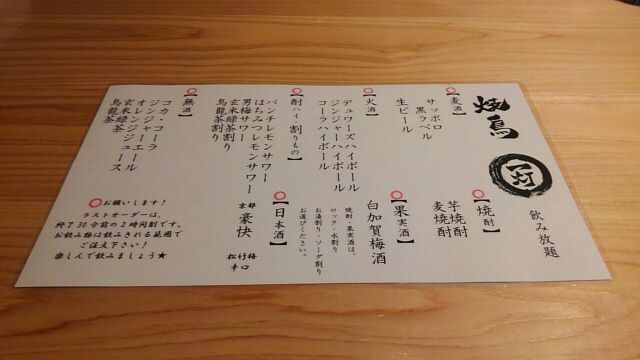 焼鳥
飲み放題
【麦酒】
サッポロ
黒ラベル
生ビール
【火酒】
デュワーズハイボール
ジンジャーハイボール
コーラハイボール
【酎ハイ・割りもの】
パンチレモンサワー
はちみつレモンサワー
男梅サワー
玄米緑茶割り
烏龍茶割り
【無酒】
コカ・コーラ
ジンジャーエール
オレンジジュース
玄米緑茶
烏龍茶
【焼酎】
芋焼酎
麦焼酎
【果実酒】
白加賀梅酒
焼酎・果実酒は、
ロック・水割り
お湯割り・ソーダ割り
お選びください。
【日本酒】
京都
豪快
松竹梅
辛口
お願いします!
ラストオーダーは、
終了30分前の2時間制です。
お飲み物は飲みきれる範囲で
ご注文下さい!
楽しんで飲みましょう★